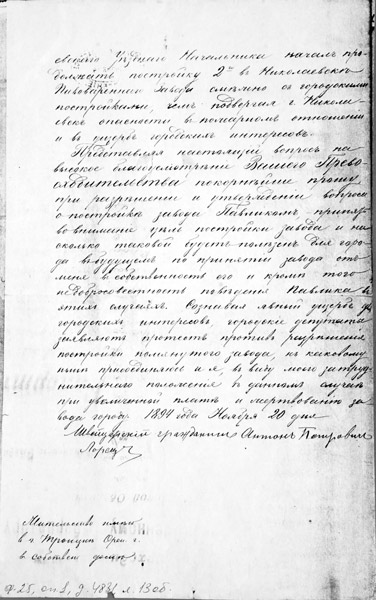 Уѣзднаго Начальника началъ про-
должать постройку 2го въ Николаевскѣ
Пивовареннаго Завода смежно съ городскими
постройками, чемъ подвергая г. Никола-
евскъ опасности въ пожарномъ отношеніи
и въ ущербъ городскимъ интересовъ.
Представляя настоящій вопросъ на
высокое благоусмотрѣніе Вашего Прево-
сходительства покорнѣйше прошу
при разрешеніи и утвержденіи вопроса
о постройкѣ завода Павликомъ принять
во вниманіе цѣль постройки завода и на-
сколько таковой будетъ полезенъ для горо-
да въ будущемъ по принятіи завода отъ
меня въ собственность его и кроме того
недобросовестность поведенія Павлика въ
этимъ случаяхъ. Сознавая явный ущербъ
городскимъ интересовъ, городскіе депутаты
заявляютъ протестъ противъ разрешенія
постройки помянутого завода, къ каковому
ними присоединяюсь и я, въ виду моего затруд-
нительнаго положенія въ данномъ случаѣ
при увеличенной платѣ и пожертвованію за-
вода городу 1899 года Ноября 20 дня
Швейцарскій гражданинъ Антонъ Петровичъ
Лорецъ
Жительство имѣю
въ г. Троицкѣ Орен. г.
въ собствен домѣ.
Ф. 25, оп 1, д. 4831 л. 13 об.